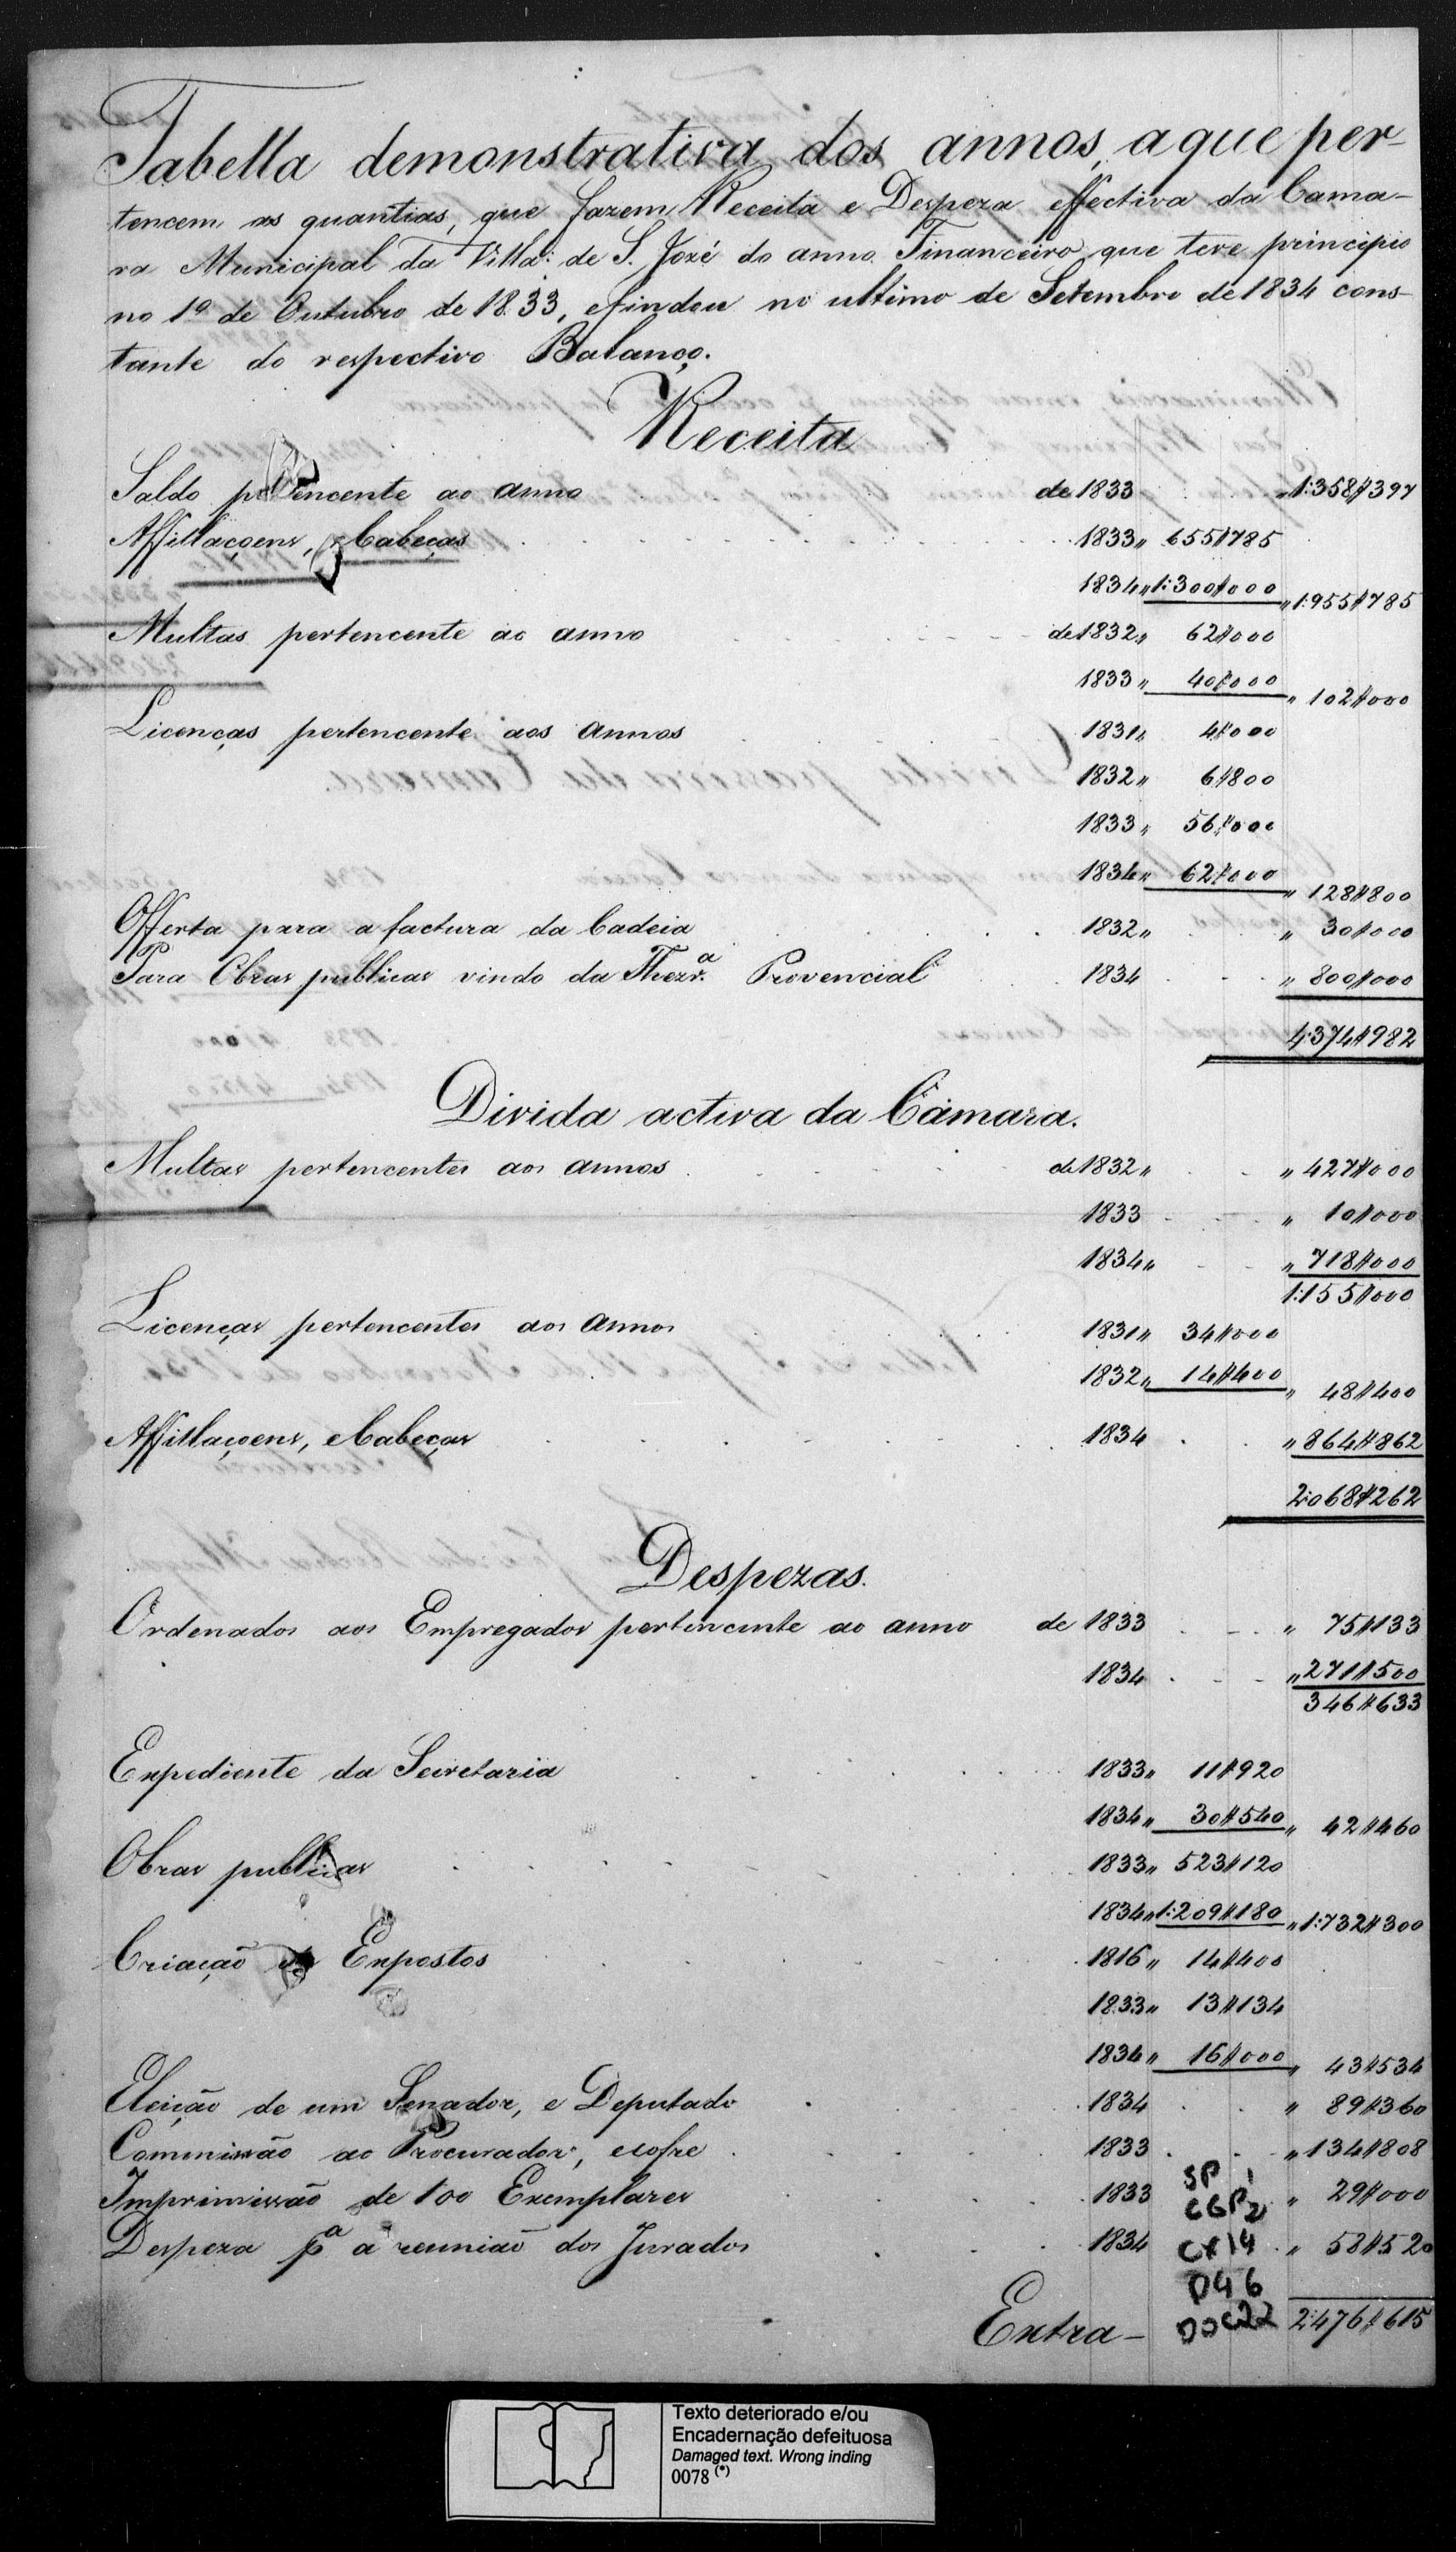 Tabella demonstrativa dos annos, a que per-
tencem as quantias, que fazem Receita e Despeza effectiva da Cama-
ra Municipal da Villa de S. José do anno Financeiro que teve principio
no 1º de Outubro de 1833, e findou no ultimo de Setembro de 1834 cons-
tante do respectivo Balanço.
Receita
Saldo pertencente ao anno de 1833 " 1:358$397
Affillaçoens, e Cabeças 1833 " 655$785
1834 " 1:300$000 " 1:955$785
Multas pertencente ao anno de 1832 " 62$000
1833 " 40$000 " 102$000
Licenças pertencente aos annos 1831 " 4$000
1832 " 6$800
1833 " 56$000
1834 " 62$000 " 128$800
Offerta para a factura da Cadeia 1832 " " 30$000
Para Obras publicas vindo da Thezr.ª Provencial 1834 " 800$000
4:374$982
Divida activa da Câmara.
Multas pertencentes aos annos de 1832 " " 427$000
1833 " 10$000
1834 " " 718$000
1:155$000
Licenças pertencentes aos annos 1831 " 34$000
1832 " 14$400 " 48$400
Affillaçoens, e Cabeças 1834 " 864$862
2:068$262
Despezas.
Ordenados aos Empregados pertencente ao anno de 1833 " 75$133
1834 " 271$500
346$633
Expediente da Secretaria 1833 " 11$920
1834 " 30$540 " 42$460
Obras publicas 1833 " 523$120
1834 " 1:209$180 " 1:732$300
Criação de Expostos 1816 " 14$400
1833 " 13$134
1834 " 16$000 " 43$534
Eleição de um Senador, e Deputado 1834 " 89$360
Commissão ao Procurador, e cofre 1833 " 134$808
Imprimissão de 100 Exemplares 1833 " 29$000
Despeza pª a reunião dos Jurados 1834 " 58$520
Extra- 2:476$615
SP 1
CGP2
CX14
D46
DOC22
Texto deteriorado e/ou
Encadernação defeituosa
Damaged text. Wrong inding
0078 (*)